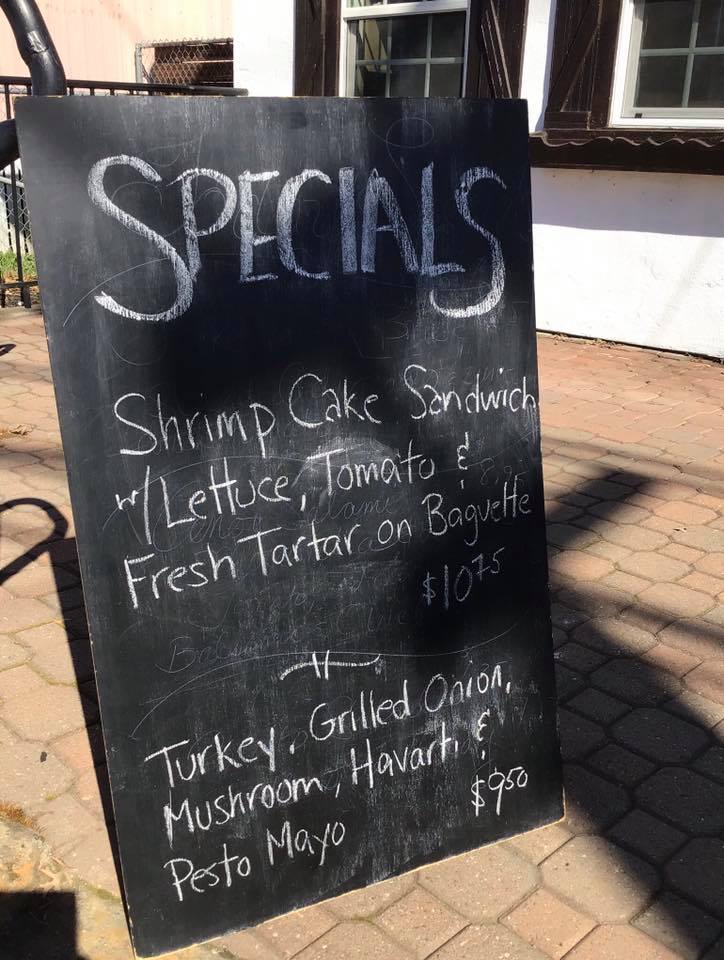 SPECIALS
Shrimp Cake Sandwich
w/ Lettuce, Tomato &
Fresh Tartar on Baguette
$10.75
Turkey, Grilled Onion,
Mushroom, Havarti &
$9.50
Pesto Mayo